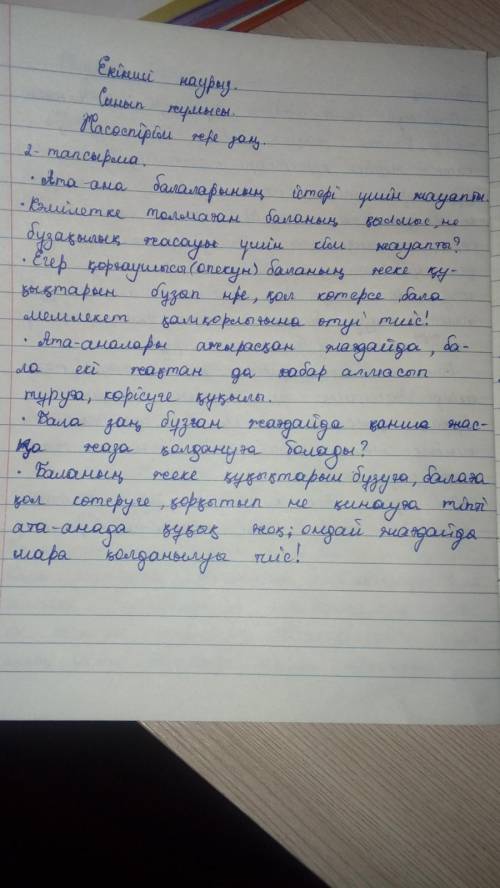 Екінші наурыз.
Сынып жұмысы.
Жасөспірім және заң.
2-тапсырма.
• Ата-ана балаларының істері үшін жауапты.
• Кәмілетке толмаған баланың қылмыс, не
бұзақылық жасауы үшін кім жауапты?
• Егер қорғаушысы (опекун) баланың жеке құ-
қықтарын бұзап, қол көтерсе, бала
мемлекет қамқорлығына өтуі тиіс!
• Ата-аналары ажырасқан жағдайда, ба-
ла екі жақтан да хабар алмасып
тұруға, көрісуге құқылы.
• Бала заң бұзған жағдайда қанша жас-
қа жаза қолдануға болады?
• Баланың жеке құқықтарын бұзуға, балаға
қол көтеруге, қорқытып не қинауға тіпті
ата-анада құқық жоқ; ондай жағдайда
шара қолданылуы тиіс!